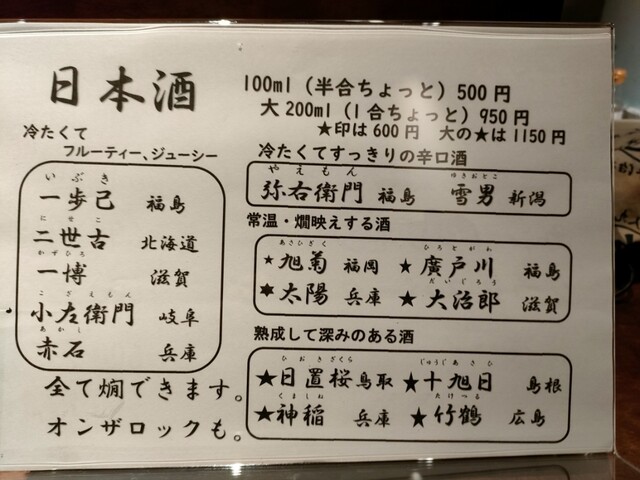 日本酒
100ml（半合ちょっと）500円
大 200ml（1合ちょっと）950円
★印は600円 大の★は1150円
冷たくて
フルーティー、ジューシー
いぶき
一歩己 福島
にせこ
二世古 北海道
かずひろ
一博 滋賀
こざえもん
小左衛門 岐阜
あかし
赤石 兵庫
全て燗できます。
オンザロックも。
冷たくてすっきりの辛口酒
やえもん ゆきおとこ
弥右衛門 福島 雪男 新潟
常温・燗映えする酒
あさひぎく ひろとがわ
★旭菊 福岡 ★廣戸川 福島
だいじろう
★太陽 兵庫 ★大治郎 滋賀
熟成して深みのある酒
ひおきざくら じゅうじあさひ
★日置桜 鳥取 ★十旭日 島根
くましね たけつる
★神稲 兵庫 ★竹鶴 広島